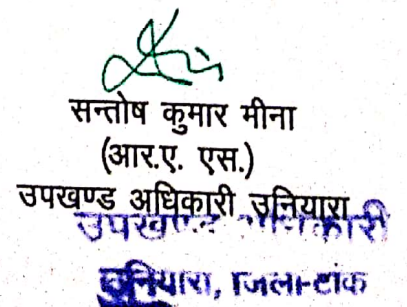 सन्तोष कुमार मीना
(आर.ए. एस.)
उपखण्ड अधिकारी उनियारा
उपखण्ड अधिकारी
उनियारा, जिला-टोंक